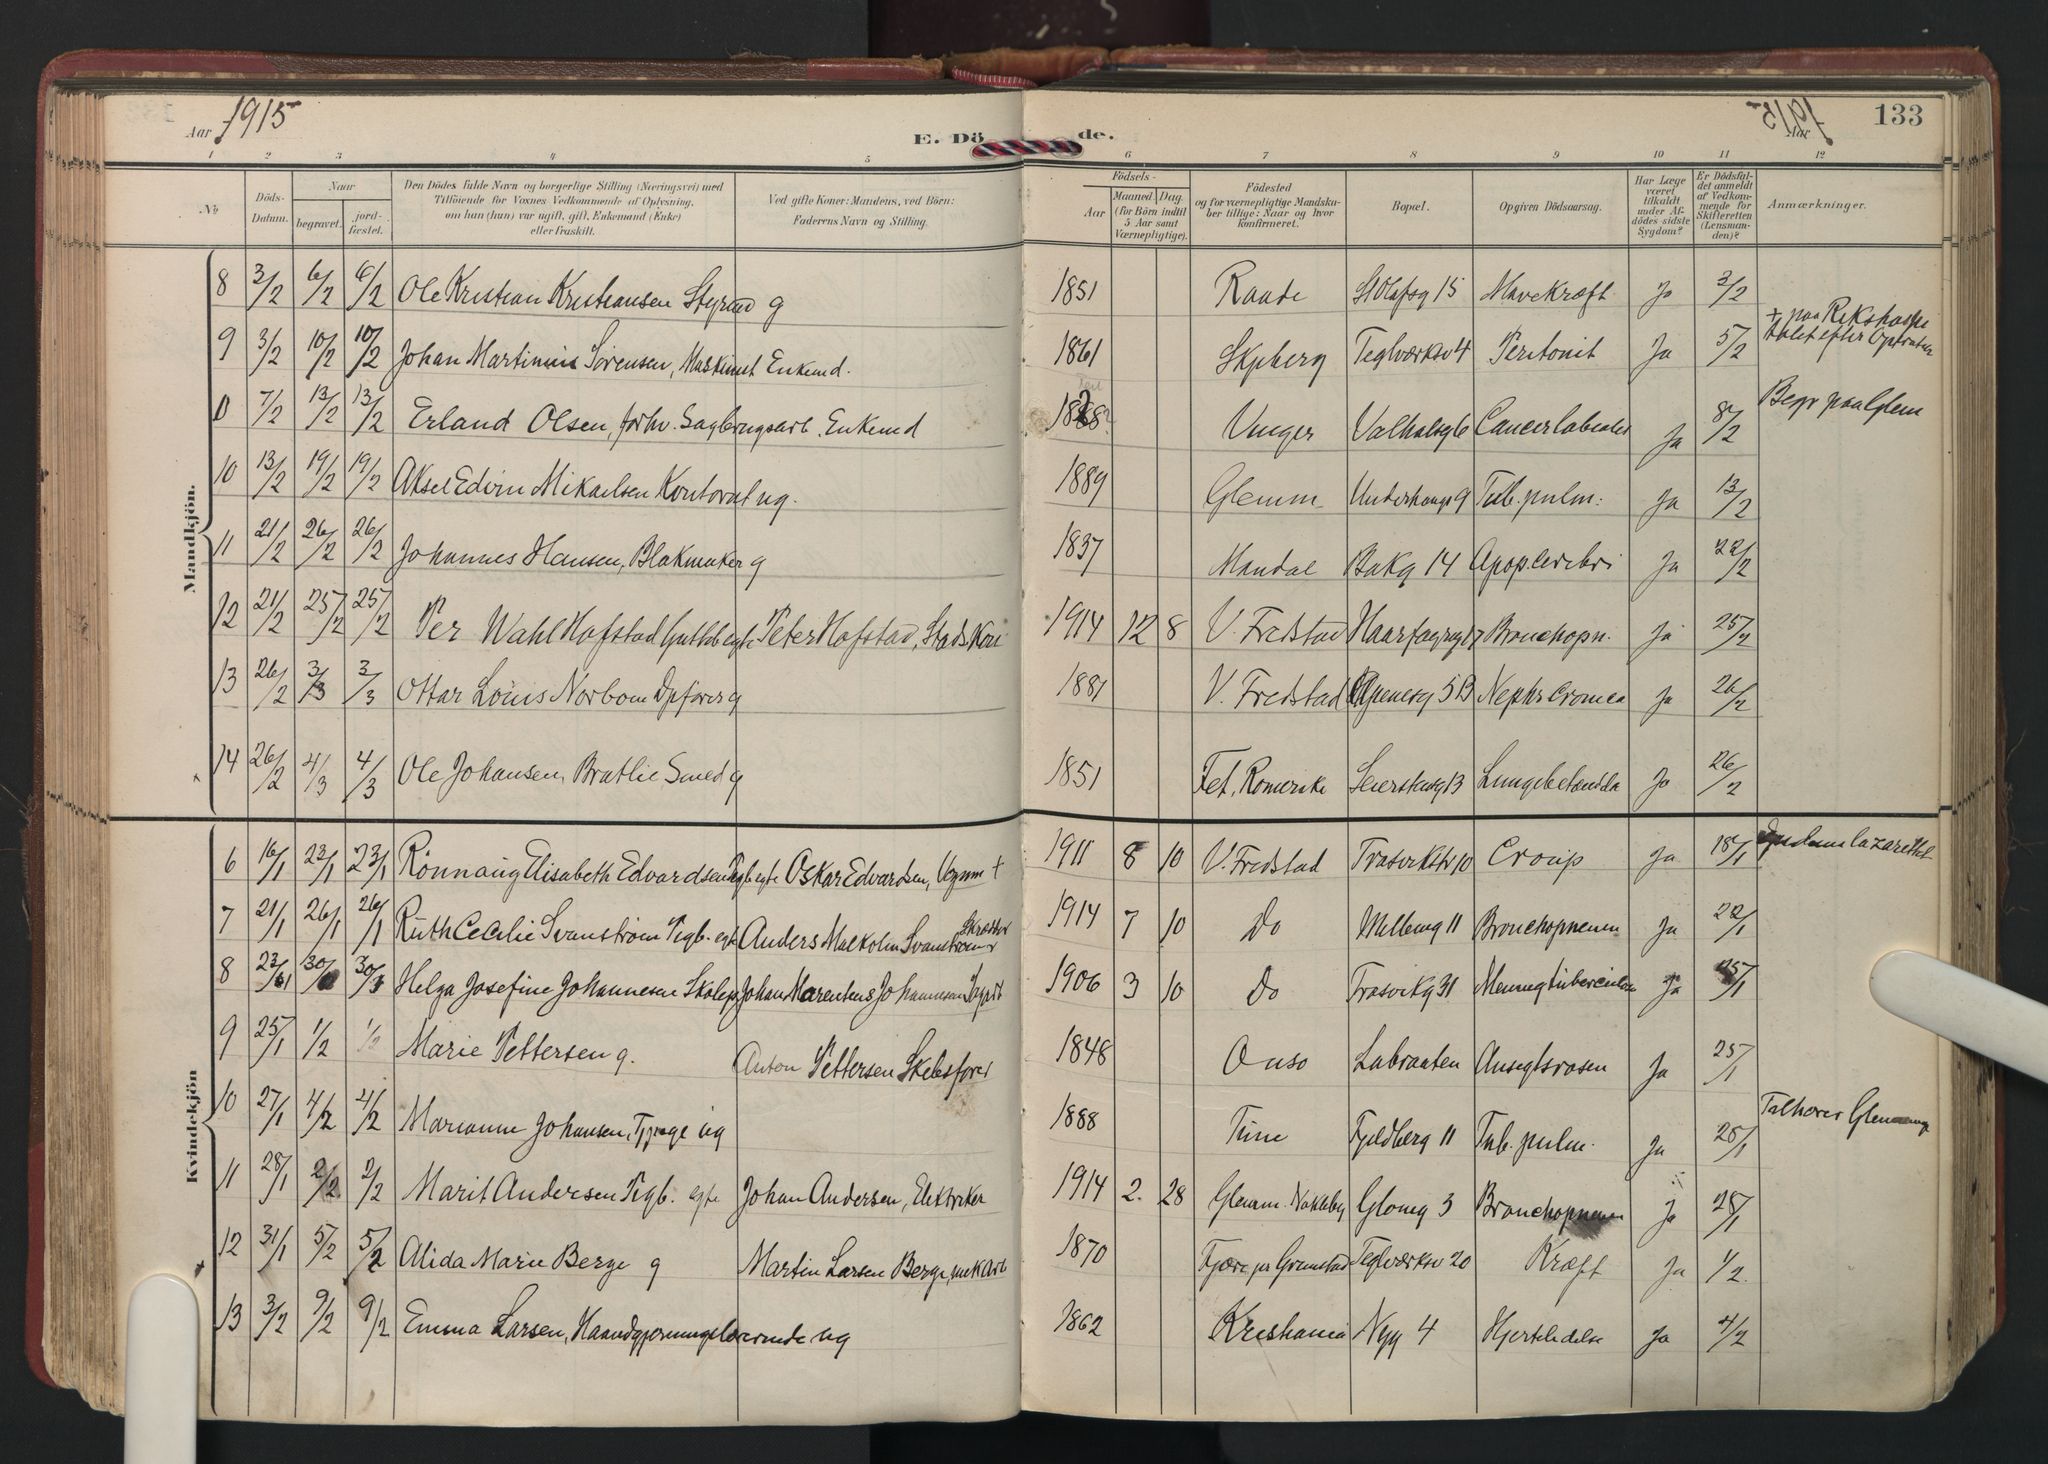 Aar 1915
E. Dö de.
1915 Aar
133
1 2 3 4 5 6 7 8 9 10 11 12
No
Döds-Datum.
Naar
begravet.
jord-fæstet.
Den Dödes fulde Navn og borgerlige Stilling (Næringsvei) med
Tilföiende for Voxnes Vedkommende af Oplysning,
om han (hun) var ugift, gift, Enkemand (Enke)
eller fraskilt.
Ved gifte Koner: Mandens, ved Börn:
Faderens Navn og Stilling.
Födsels-
Aar
Maaned
Dag.
(for Börn indtil
5 Aar samt
Værnepligtige).
Födested
og for værnepligtige Mandsku-
ber tillige: Naar og hvor
konfirmeret.
Bopæl.
Opgiven Dödsaarsag.
Har Læge
været
tilkaldt
under Af-
dödes sidste
Sygdom?
Er Dödsful-
det anmeldt
af Vedkom-
mende for
Skifteretten
(Lensman-
den)?
Anmærkninger.
Mandkjön.
8 3/2 6/2 6/2 Ole Kristian Kristiansen g 1851 Raade St Olafsg 15 Mavekræft Ja 3/2
9 3/2 10/2 10/2 Johan Martinius Sörensen, Enkemd. 1861 Skjeberg Teglværksv 4 Peritonit Ja 5/2 + paa Rikshospitalet efter Operation
7/2 13/2 13/2 Erland Olsen, forhv. Enkemd Vinger Valhalsg 6 Cancer labialis Ja 8/2 Begr paa Glem
10 13/2 19/2 19/2 Aksel Edvin Mikaelsen ug. 1889 Glemm 9 Tub. pulm. Ja 13/2
11 21/2 26/2 26/2 Johannes Hansen, Blokmaker g 1837 Mandal Bakg 14 Apop. cerebri Ja 22/2
12 21/2 25/2 25/2 Per Wahl Hofstad egte Peter Hofstad, 1914 12 8 V. Fredstad Haarfagresg 17 Bronchopn. Ja 25/2
13 26/2 3/3 3/3 Ottar Louis Norbom g 1881 V. Fredstad 5B Nephr Cronica Ja 26/2
14 26/2 4/3 4/3 Ole Johansen, Bratlie Smed g 1851 Fet, Romerike 13 Lungebetændelse Ja 26/2
Kvindekjön
6 16/1 23/1 23/1 Rönnaug Elisabeth Edvardsen Pigb egte Oskar Edvardsen, + 1911 8 10 V. Fredstad 10 Croup Ja 18/1 Epidemilazarettet
7 21/1 26/1 26/1 Ruth Cecilie Svanström Pigb. egte Anders Malkolm Svanström Skrædder 1914 7 10 Do 11 Bronchopneum Ja 22/1
8 23/1 30/1 30/1 Helga Josefine Johannesen Skolep Johan Johannesen 1906 3 10 Do Trosvikg 31 Ja 25/1
9 25/1 1/2 1/2 Marie Pettersen g. Anton Pettersen Skibsförer 1848 Onsö Labraaten Ansigtsrosen Ja 25/1
10 27/1 4/2 4/2 Marianne Johansen, ug 1888 Tune Fjeldberg 11 Tub. pulm. Ja 28/1
11 28/1 2/2 2/2 Marit Andersen Pigb. egte Johan Andersen, Elektriker 1914 2. 28 Glemm. Nokleby Glomg 3 Bronchopneum Ja 28/1
12 31/1 5/2 5/2 Alida Marie Berge g Martin Larsen Berge, mek Arb 1870 Fjære pr Grimstad Teglværksv 20 Kræft Ja 1/2
13 3/2 9/2 9/2 Emma Larsen, Haandgjerningslærerinde ug 1862 Kristiania Nyg 4 Hjertelidelse Ja 4/2